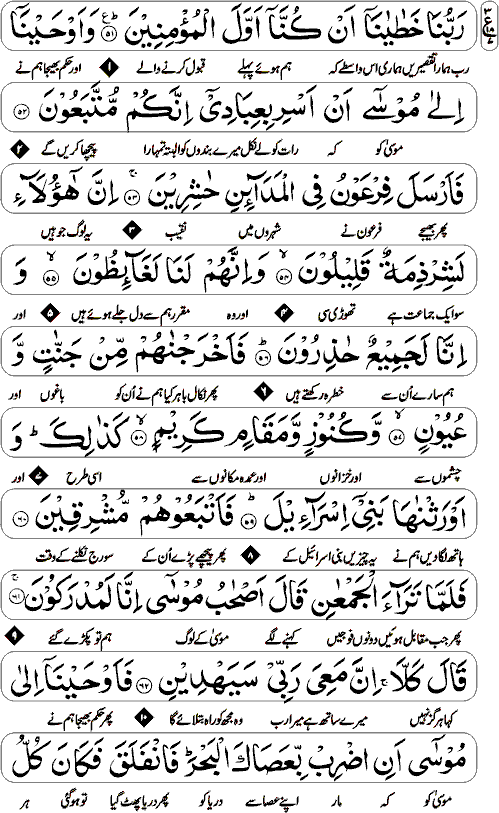 رَبُّنَا خَطٰيٰنَآ اَنْ كُنَّآ اَوَّلَ الْمُؤْمِنِيْنَ ۝۵۱ وَاَوْحَيْنَآ
رب ہمارا تقصیریں ہماری اس واسطے کہ ہم ہوئے پہلے قبول کرنے والے ۱ اور حکم بھیجا ہم نے
اِلٰى مُوْسٰٓى اَنْ اَسْرِ بِعِبَادِيْٓ اِنَّكُمْ مُّتَّبَعُوْنَ ۝۵۲
موسیٰ کو کہ رات کو لے نکل میرے بندوں کو البتہ تمہارا پیچھا کریں گے ۲
فَاَرْسَلَ فِرْعَوْنُ فِى الْمَدَآئِنِ حٰشِرِيْنَ ۝۵۳ اِنَّ هٰٓؤُلَآءِ
پھر بھیجے فرعون نے شہروں میں نقیب ۳ یہ لوگ جو ہیں
لَشِرْذِمَةٌ قَلِيْلُوْنَ ۝۵۴ وَاِنَّهُمْ لَنَا لَغَآئِظُوْنَ ۝۵۵ وَ
سو ایک جماعت ہے تھوڑی سی ۴ اور وہ مقرر ہم سے دل جلے ہوئے ہیں ۵ اور
اِنَّا لَجَمِيْعٌ حٰذِرُوْنَ ۝۵۶ فَاَخْرَجْنٰهُمْ مِّنْ جَنّٰتٍ وَّ
ہم سارے اُن سے خطرہ رکھتے ہیں ۶ پھر نکال باہر کیا ہم نے اُن کو باغوں اور
عُيُوْنٍ ۝۵۷ وَّكُنُوْزٍ وَّمَقَامٍ كَرِيْمٍ ۝۵۸ كَذٰلِكَ ؕ وَ
چشموں سے اور خزانوں اور عمدہ مکانوں سے اسی طرح ۷ اور
اَوْرَثْنٰهَا بَنِيْٓ اِسْرَآءِيْلَ ۝۵۹ فَاَتْبَعُوْهُمْ مُّشْرِقِيْنَ ۝۶۰
ہاتھ لگادیں ہم نے یہ چیزیں بنی اسرائیل کے ۸ پھر پیچھے پڑے اُن کے سورج نکلنے کے وقت
فَلَمَّا تَرَآءَ الْجَمْعٰنِ قَالَ اَصْحٰبُ مُوْسٰٓى اِنَّا لَمُدْرَكُوْنَ ۝۶۱
پھر جب مقابل ہوئیں دونوں فوجیں کہنے لگے موسیٰ کے لوگ ہم تو پکڑے گئے ۹
قَالَ كَلَّا ۚ اِنَّ مَعِيَ رَبِّيْ سَيَهْدِيْنِ ۝۶۲ فَاَوْحَيْنَآ اِلٰى
کہا ہرگز نہیں میرے ساتھ ہے میرا رب وہ مجھ کو راہ بتلائے گا ۱۰ پھر حکم بھیجا ہم نے
مُوْسٰٓى اَنِ اضْرِبْ بِّعَصَاكَ الْبَحْرَ ؕ فَانْفَلَقَ فَكَانَ كُلُّ
موسیٰ کو کہ مار اپنے عصا سے دریا کو پھر دریا پھٹ گیا تو ہو گئی ہر